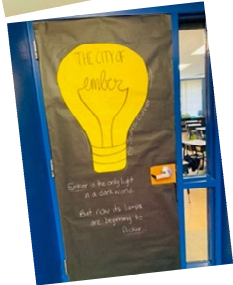 THE CITY OF
ember
Ember is the only light
in a dark world.
But now its lamps
are beginning to
flicker.